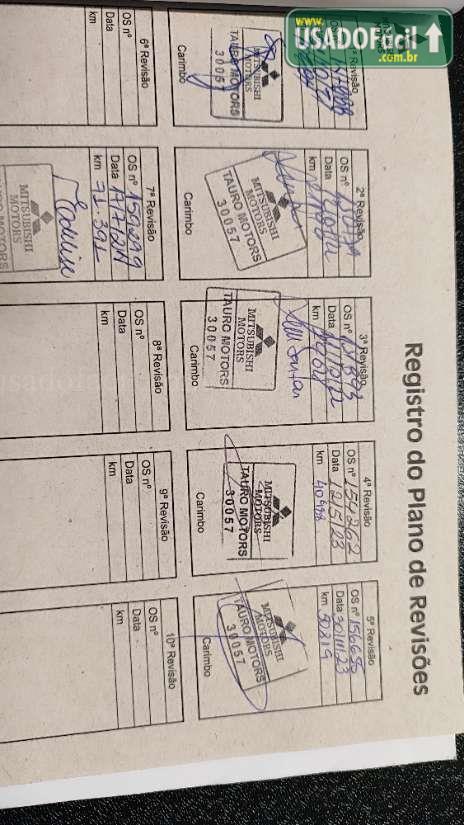 www.
USADOFácil
.com.br
Registro do Plano de Revisões
1ª Revisão
OS nº
Data
km
MITSUBISHI
MOTORS
TAURO MOTORS
30057
Carimbo
2ª Revisão
OS nº
Data
km
MITSUBISHI
MOTORS
TAURO MOTORS
30057
Carimbo
3ª Revisão
OS nº
Data
km
MITSUBISHI
MOTORS
TAURO MOTORS
30057
Carimbo
4ª Revisão
OS nº 154262
Data 12/5/23
km 40498
MITSUBISHI
MOTORS
TAURO MOTORS
30057
Carimbo
5ª Revisão
OS nº 156650
Data 30/11/23
km 50819
MITSUBISHI
MOTORS
TAURO MOTORS
30057
Carimbo
6ª Revisão
OS nº
Data
km
7ª Revisão
OS nº
Data
km 71.391
MITSUBISHI
MOTORS
TAURO MOTORS
30057
8ª Revisão
OS nº
Data
km
9ª Revisão
OS nº
Data
km
10ª Revisão
OS nº
Data
km